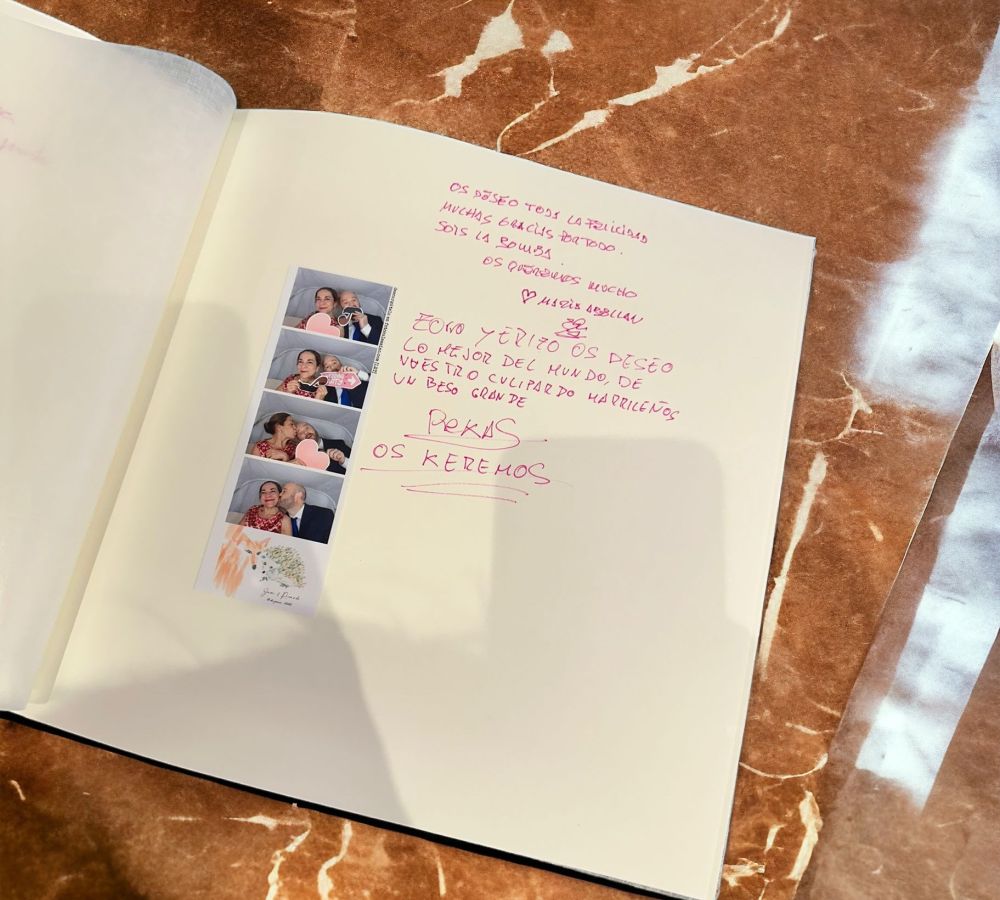 OS DESEO TODA LA FELICIDAD
MUCHAS GRACIAS POR TODO.
SOIS LA BOMBA.
OS QUEREMOS MUCHO
♡ MARIA ABELLAN
ZORRO Y ERIZO OS DESEO
LO MEJOR DEL MUNDO, DE
VUESTRO CULIPARDO MARRILEÑOS
UN BESO GRANDE
PEKAS
OS KEREMOS